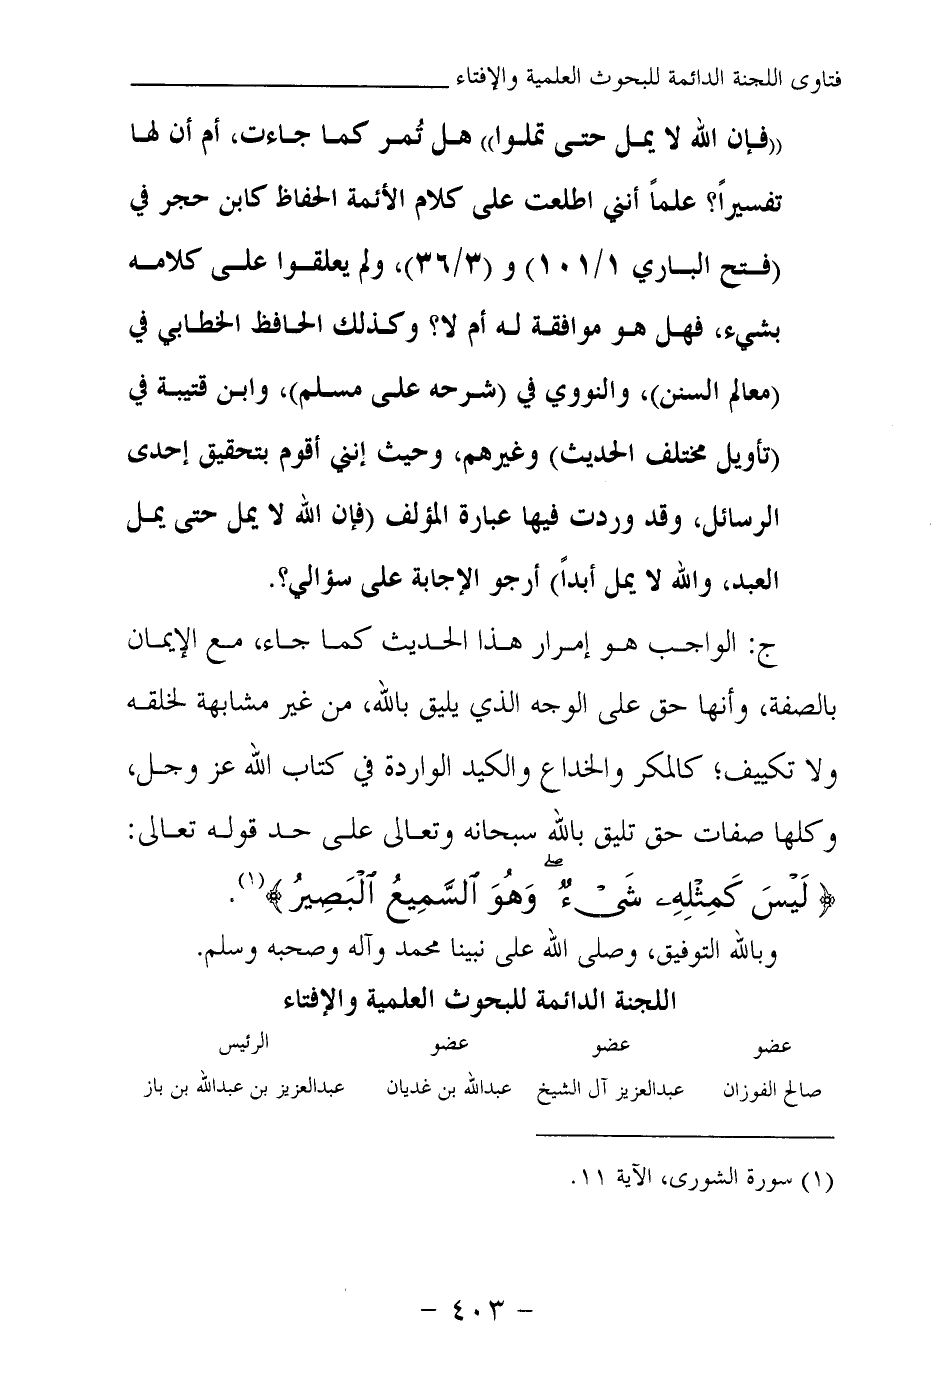 فتاوى اللجنة الدائمة للبحوث العلمية والإفتاء
((فإن الله لا يمل حتى تملوا)) هل تُمر كما جاءت، أم أن لها
تفسيراً؟ علماً أنني اطلعت على كلام الأئمة الحفاظ كابن حجر في
(فتح الباري ١٠١/١) و (٣٦/٣)، ولم يعلقوا على كلامه
بشيء، فهل هو موافقة له أم لا؟ وكذلك الحافظ الخطابي في
(معالم السنن)، والنووي في (شرحه على مسلم)، وابن قتيبة في
(تأويل مختلف الحديث) وغيرهم، وحيث إنني أقوم بتحقيق إحدى
الرسائل، وقد وردت فيها عبارة المؤلف (فإن الله لا يمل حتى يمل
العبد، والله لا يمل أبداً) أرجو الإجابة على سؤالي؟.
ج: الواجب هو إمرار هذا الحديث كما جاء، مع الإيمان
بالصفة، وأنها حق على الوجه الذي يليق بالله، من غير مشابهة لخلقه
ولا تكييف؛ كالمكر والخداع والكيد الواردة في كتاب الله عز وجل،
وكلها صفات حق تليق بالله سبحانه وتعالى على حد قوله تعالى:
﴿ لَيْسَ كَمِثْلِهِۦ شَىْءٌ ۖ وَهُوَ ٱلسَّمِيعُ ٱلْبَصِيرُ ﴾(١).
وبالله التوفيق، وصلى الله على نبينا محمد وآله وصحبه وسلم.
اللجنة الدائمة للبحوث العلمية والإفتاء
عضو عضو عضو الرئيس
صالح الفوزان عبدالعزيز آل الشيخ عبدالله بن غديان عبدالعزيز بن عبدالله بن باز
(١) سورة الشورى، الآية ١١.
- ٤٠٣ -